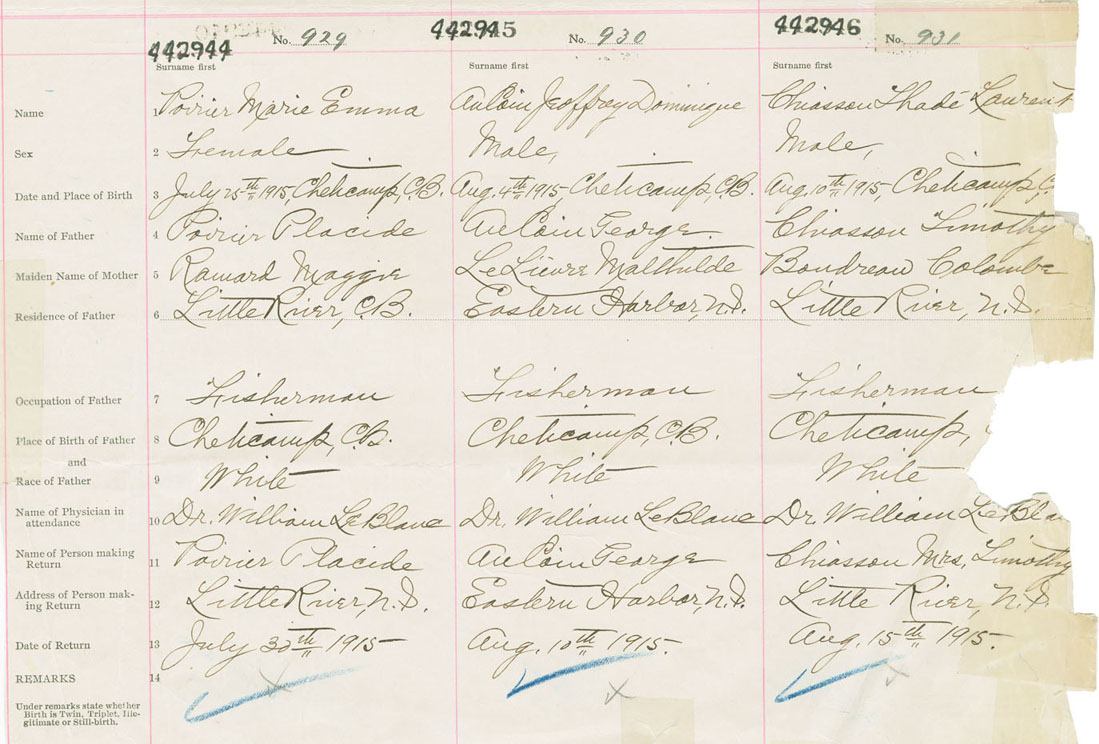 442944 No. 929 442945 No. 930 442946 No. 931
Surname first Surname first Surname first
Name 1 Poirier Marie Emma AuCoin Jeoffrey Dominique Chiasson Thadé Laurent
Sex 2 Female Male, Male,
Date and Place of Birth 3 July 25th 1915, Cheticamp, C.B. Aug. 4th 1915 Cheticamp, C.B. Aug. 10th 1915, Cheticamp, C
Name of Father 4 Poirier Placide AuCoin George. Chiasson Timothy
Maiden Name of Mother 5 Maggie LeLievre Malthilde Boudreau Colombe
Residence of Father 6 Little River, C.B. Eastern Harbor, N.S. Little River, N.S.
Occupation of Father 7 Fisherman Fisherman Fisherman
Place of Birth of Father 8 Cheticamp, C.B. Cheticamp, C.B. Cheticamp,
and
Race of Father 9 White White White
Name of Physician in
attendance 10 Dr. William LeBlanc Dr. William LeBlanc Dr. William LeBla
Name of Person making
Return 11 Poirier Placide AuCoin George Chiasson Mrs. Timothy
Address of Person mak-
ing Return 12 Little River, N.S. Eastern Harbor, N.S. Little River, N.S.
Date of Return 13 July 30th 1915 Aug. 10th 1915. Aug. 15th 1915.
REMARKS 14
Under remarks state whether
Birth is Twin, Triplet, Ille-
gitimate or Still-birth.